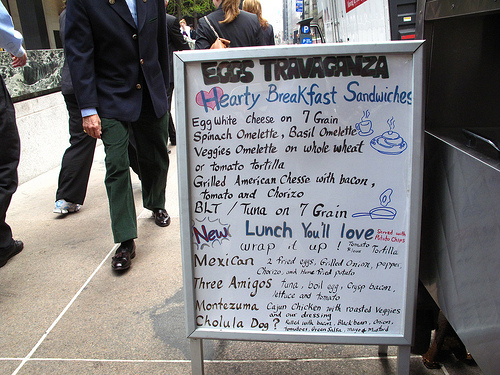 EGGS TRAVAGANZA
Hearty Breakfast Sandwiches
Egg White Cheese on 7 Grain
Spinach Omelette, Basil Omelette
Veggies Omelette on whole wheat
or tomato tortilla
Grilled American Chesse with bacon,
tomato and Chorizo
BLT / Tuna on 7 Grain
New Lunch You'll love
Served with
Potato Chips
wrap it up! Tomato Tortilla
Mexican 2 fried eggs, Grilled Onion, pepper,
Chorizo, and Home fried potato
Three Amigos tuna, boil egg, Crisp bacon,
lettuce and tomato
Montezuma Cajun Chicken with roasted Veggies
and our dressing
Cholula Dog? Rolled with bacon, Black bean, Onion,
tomatoes, Green Salsa, mayo & Mustard
P